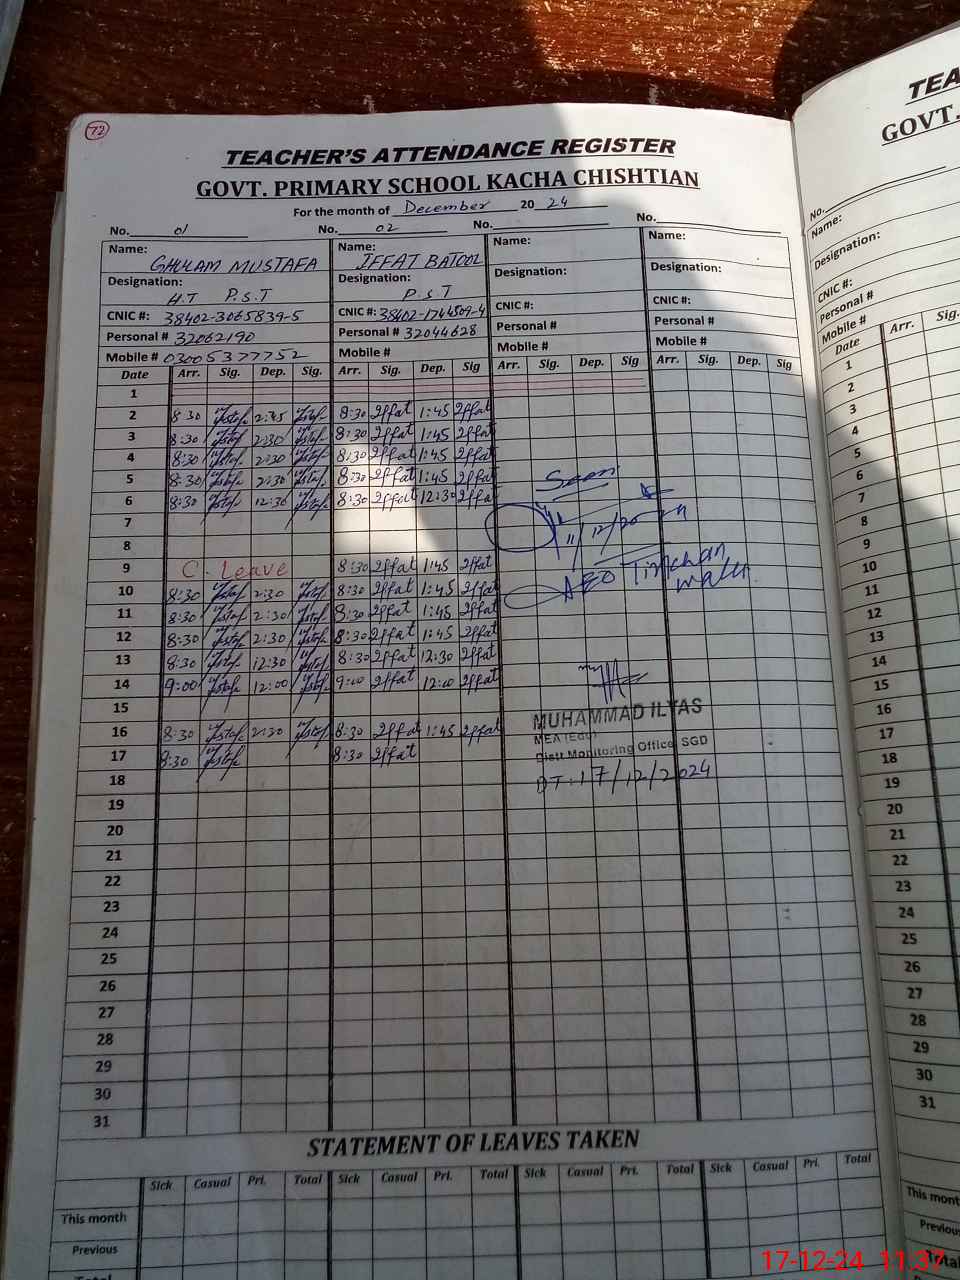 72
TEACHER'S ATTENDANCE REGISTER
GOVT. PRIMARY SCHOOL KACHA CHISHTIAN
For the month of December 2024
No. 01 No. 02 No. No.
Name: GHULAM MUSTAFA Name: IFFAT BATOOL Name: Name:
Designation: H.T P.S.T Designation: P.S.T Designation: Designation:
CNIC #: 38402-3065839-5 CNIC #: 38402-1744509-4 CNIC #: CNIC #:
Personal # 32062190 Personal # 32044628 Personal # Personal #
Mobile # 03005377752 Mobile # Mobile # Mobile #
Date Arr. Sig. Dep. Sig. Arr. Sig. Dep. Sig Arr. Sig. Dep. Sig Arr. Sig. Dep. Sig
1
2 8:30 2:45 8:30 Iffat 1:45 Iffat
3 8:30 2:30 8:30 Iffat 1:45 Iffat
4 8:30 2:30 8:30 Iffat 1:45 Iffat
5 8:30 2:30 8:30 Iffat 1:45 Iffat
6 8:30 12:30 8:30 Iffat 12:30 Iffat
7
8
9 C. Leave 8:30 Iffat 1:45 Iffat
10 8:30 2:30 8:30 Iffat 1:45 Iffat
11 8:30 2:30 8:30 Iffat 1:45 Iffat
12 8:30 2:30 8:30 Iffat 1:45 Iffat
13 8:30 12:30 8:30 Iffat 12:30 Iffat
14 9:00 12:00 9:00 Iffat 12:00 Iffat
15
16 8:30 2:30 8:30 Iffat 1:45 Iffat
17 8:30 8:30 Iffat
18
19
20
21
22
23
24
25
26
27
28
29
30
31
Seen
11/12/20
AEO
MUHAMMAD ILYAS
MEA (Edu)
Distt Monitoring Office, SGD
DT: 17/12/2024
STATEMENT OF LEAVES TAKEN
Sick Casual Pri. Total Sick Casual Pri. Total Sick Casual Pri. Total Sick Casual Pri. Total
This month
Previous
Total
TEA
GOVT.
No.
Name:
Designation:
CNIC #:
Personal #
Mobile #
Date Arr. Sig.
1
2
3
4
5
6
7
8
9
10
11
12
13
14
15
16
17
18
19
20
21
22
23
24
25
26
27
28
29
30
31
This mont
Previou
Total
17-12-24 11:37